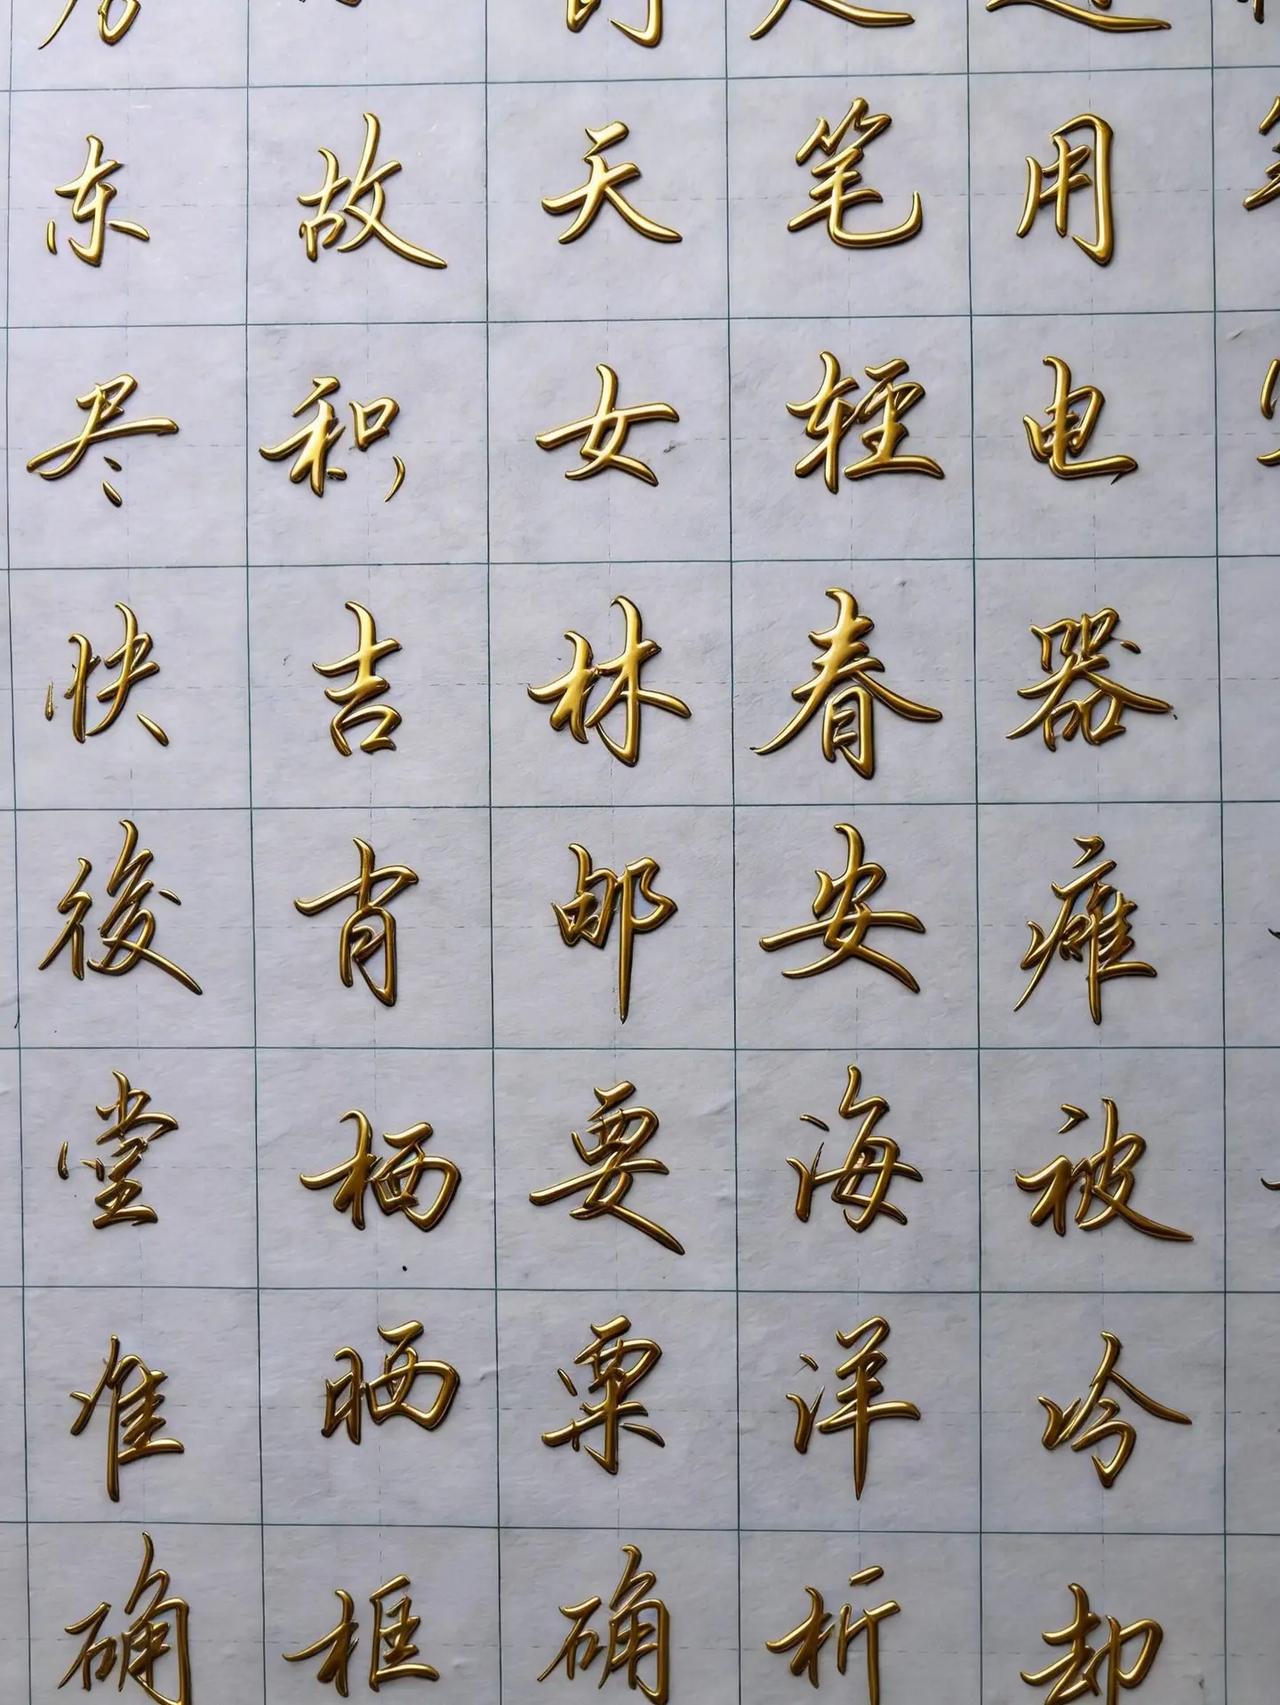 东 故 天 笔 用
尽 积 女 轻 电
快 吉 林 春 器
後 肖 邮 安 瘫
堂 栖 要 海 被
准 晒 栗 洋 吟
确 框 确 析 却